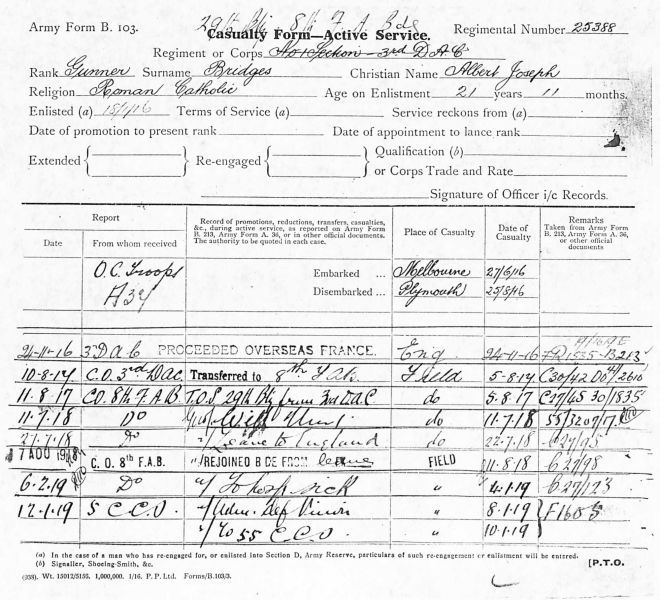 Army Form B. 103.
29th Bty. 8th F A Bde
Casualty Form—Active Service.
Regimental Number 25388
Regiment or Corps No 1 Section - 3rd D.A.C.
Rank Gunner Surname Bridges Christian Name Albert Joseph
Religion Roman Catholic Age on Enlistment 21 years 11 months.
Enlisted (a) 15/1/16 Terms of Service (a) Service reckons from (a)
Date of promotion to present rank Date of appointment to lance rank
Extended Re-engaged Qualification (b)
or Corps Trade and Rate
Signature of Officer i/c Records.
Report
Date From whom received
Record of promotions, reductions, transfers, casualties, &c., during active service, as reported on Army Form B. 213, Army Form A. 36, or in other official documents. The authority to be quoted in each case.
Place of Casualty
Date of Casualty
Remarks
Taken from Army Form B. 213, Army Form A. 36, or other official documents
O.C. Troops Embarked ... Melbourne 27/6/16
A34 Disembarked ... Plymouth 25/8/16
24-11-16 3 DAC PROCEEDED OVERSEAS FRANCE. Eng 24-11-16 1535-B213
10-8-17 C.O. 3rd DAC Transferred to 8th FAB Field 5-8-17 C30/42 2610
11.8.17 CO. 8th F.A.B T.O.S 29th Bty from 3rd DAC do 5.8.17 C27/45 30/1835
11.7.18 Do do 11.7.18 55/3207/17
27.7.18 Do Leave to England do 22.7.18 B27/95
17 AUG 1918 C. O. 8th F.A.B. REJOINED BDE FROM leave FIELD 11.8.18 B27/98
6.2.19 Do To hosp sick " 4.1.19 B27/123
12.1.19 5 C.C.S Adm. Def Vision " 8.1.19 F1685
To 55 C.C.S. " 10.1.19
(a) In the case of a man who has re-engaged for, or enlisted into Section D, Army Reserve, particulars of such re-engagement or enlistment will be entered.
(b) Signaller, Shoeing-Smith, &c.
[P.T.O.
(938). Wt. 15012/5155. 1,000,000. 1/16. P. P. Ltd. Forms/B.103/3.